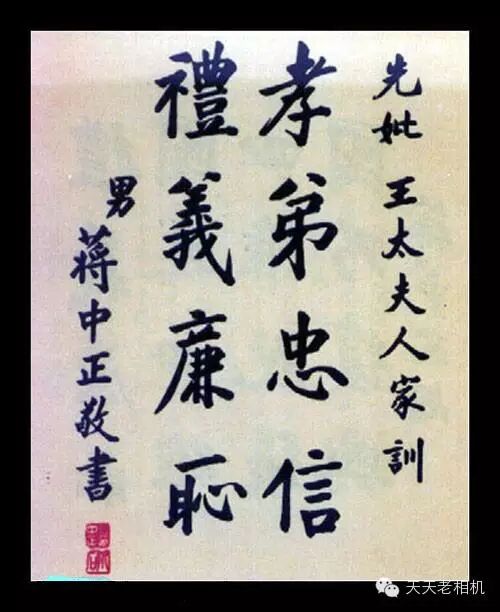 先妣王太夫人家訓
孝弟忠信
禮義廉恥
男蔣中正敬書
天天老相机